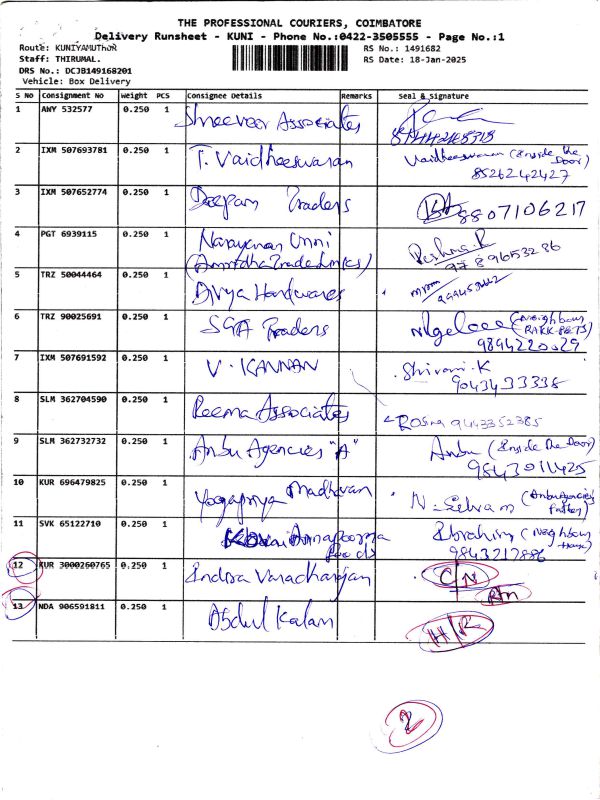 THE PROFESSIONAL COURIERS, COIMBATORE
Delivery Runsheet - KUNI - Phone No.:0422-3505555 - Page No.:1
Route: KUNIYAMUTHUR
RS No.: 1491682
Staff: THIRUMAL.
RS Date: 18-Jan-2025
DRS No.: DCJB149168201
Vehicle: Box Delivery
S No Consignment No Weight PCS Consignee Details Remarks Seal & Signature
1 AWY 532577 0.250 1 Shreeveer Associates
2 IXM 507693781 0.250 1 T. Vaidheeswaran Vaidheeswaran (Inside The Door)
8526242427
3 IXM 507652774 0.250 1 Deepam Traders 8807106217
4 PGT 6939115 0.250 1 Narayanan Unni Reshma.R
(Anurdha Tradelinks) 9789653286
5 TRZ 50044464 0.250 1 Divya Hardwares
6 TRZ 90025691 0.250 1 SGA Traders (Neighbour
9894220029
7 IXM 507691592 0.250 1 V. KANNAN Shivani.K
9043433338
8 SLM 362704590 0.250 1 Reema Associates Rosna 9443352385
9 SLM 362732732 0.250 1 Anbu Agencies "A" Anbu (Inside The Door)
9843011425
10 KUR 696479825 0.250 1 Yogapriya Madhavan N. Selvam (Anbu Agencies
11 SVK 65122710 0.250 1 Kovai Annapoorna foods Ibrahim (Neighbour House)
9843217886
12 KUR 3000260765 0.250 1 Indira Varadharajan C/N
Rtn
13 NDA 906591811 0.250 1 Abdul Kalam H/R
2